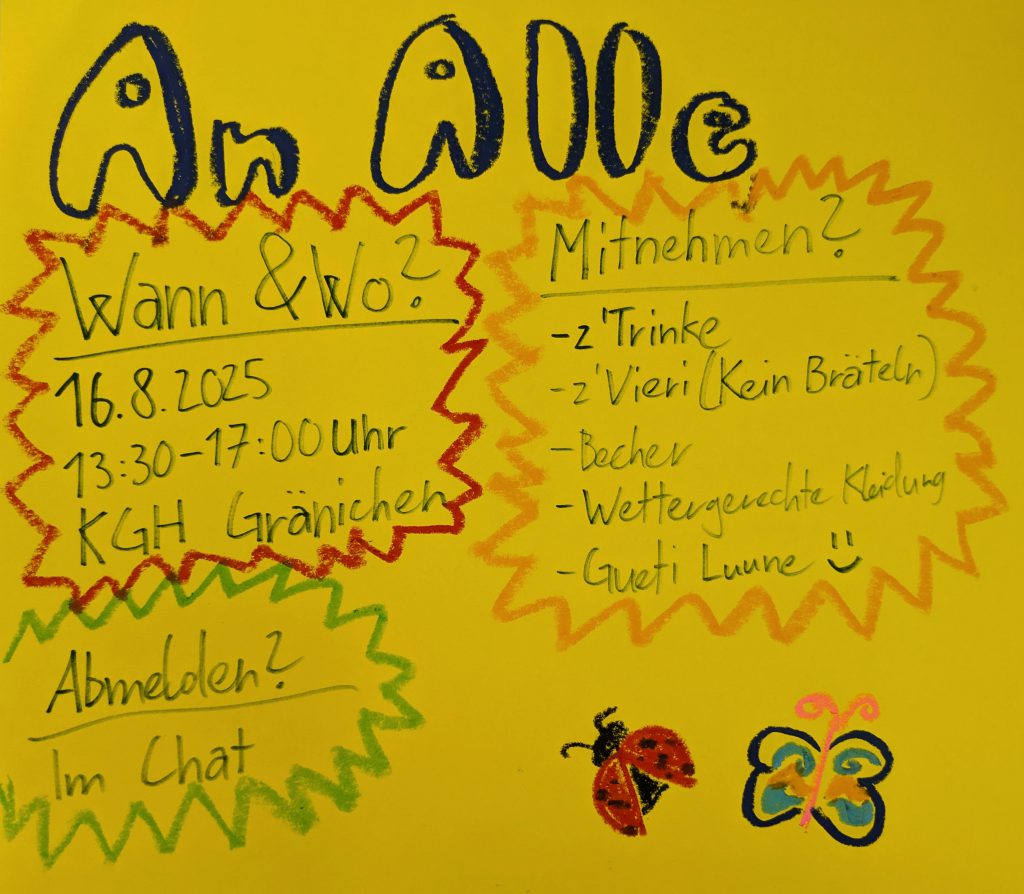 An Alle
Wann & Wo?
16.8.2025
13:30-17:00 Uhr
KGH Gränichen
Mitnehmen?
-z'Trinke
-z'Vieri (Kein Bräteln)
-Becher
-Wettergerechte Kleidung
-Gueti Luune
Abmelden?
Im Chat